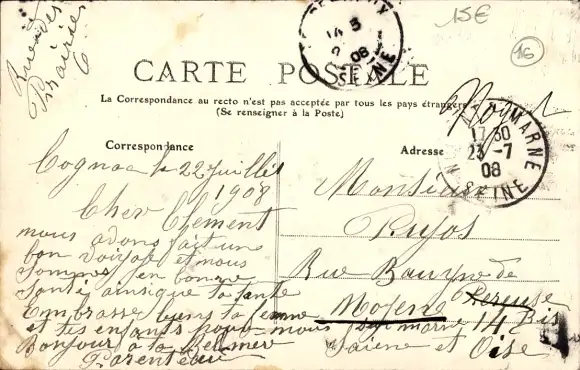 15E
16
Rue des
Prairies
6
14 3
08
SEINE
CARTE POSTALE
La Correspondance au recto n'est pas acceptée par tous les pays étrangers
(Se renseigner à la Poste)
Correspondance
Adresse
Nogent
MARNE
17 30
23 -7
08
SEINE
Cognac le 22 Juillet
1908
Cher Clement
nous avons fait un
bon voyage et nous
sommes en bonne
santé ainsique ta tante
Embrasse biens ta femme
et tes enfants pour nous
Bonjour à ta Belmere
Parenteau
Monsieur
Pujos
Rue Bauyne de
Perouse
sur marne 14 Bis
Saiene et Oise